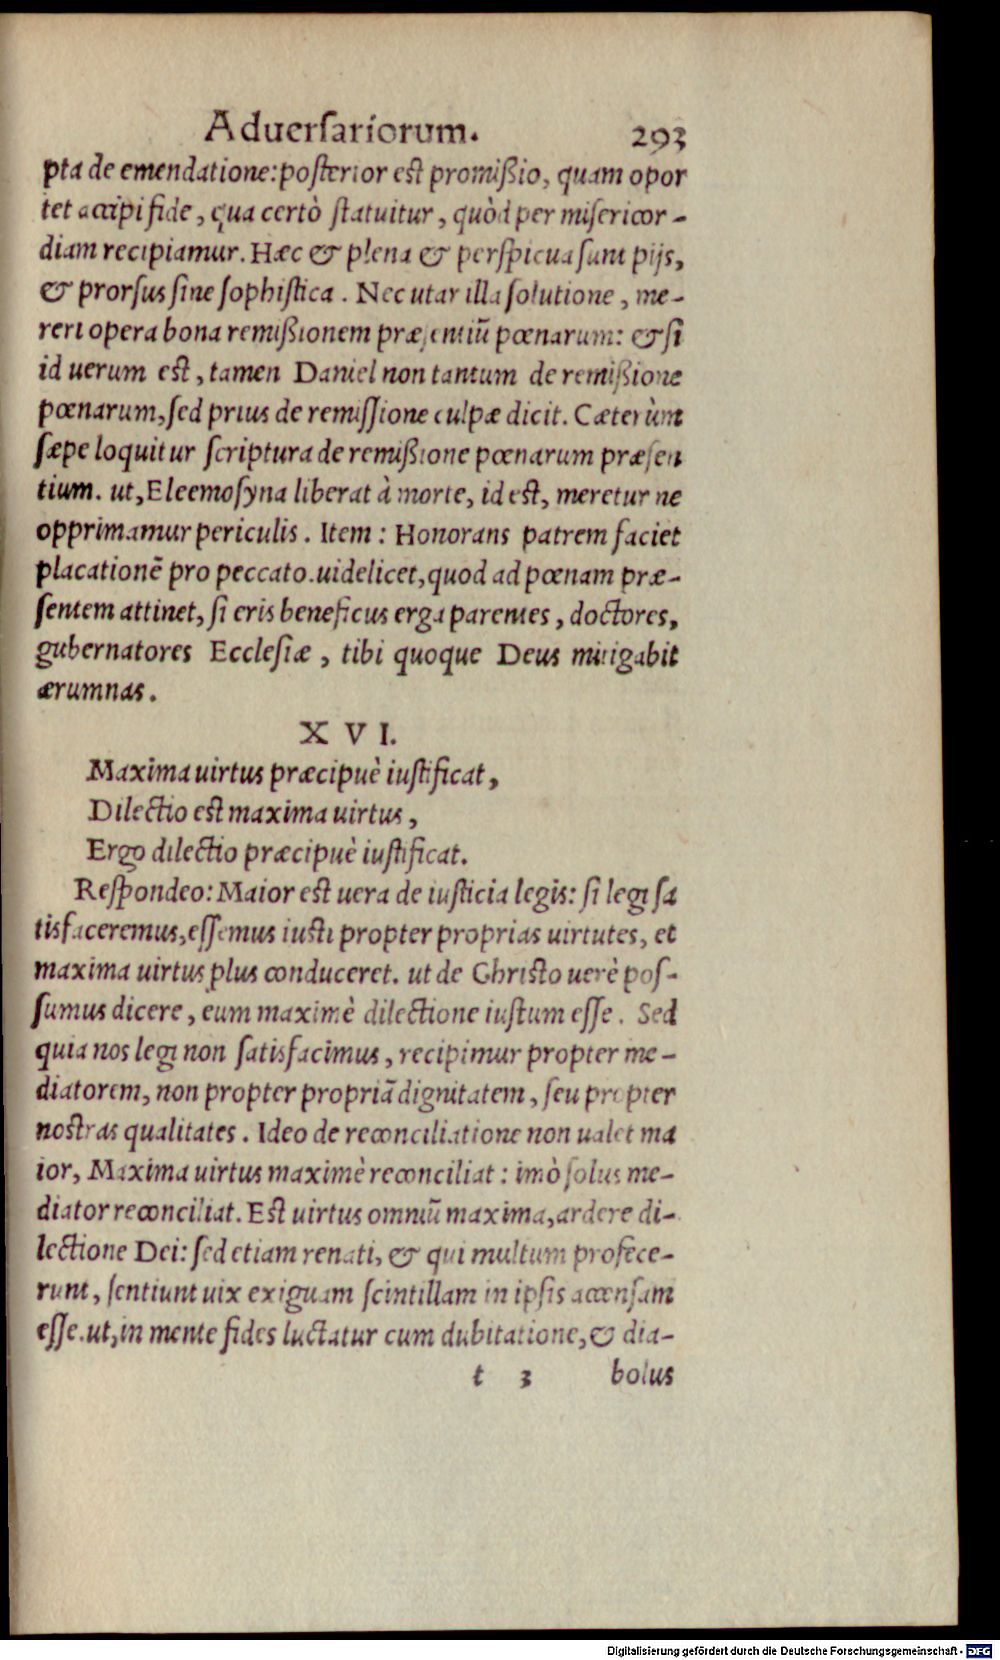 Aduerſariorum. 293
pta de emendatione: poſterior eſt promißio, quam opor
tet accipi fide, qua certò ſtatuitur, quòd per miſericor-
diam recipiamur. Hæc & plena & perſpicua ſunt pijs,
& prorſus ſine ſophiſtica. Nec utar illa ſolutione, me-
reri opera bona remißionem præſentiũ pœnarum: & ſi
id uerum eſt, tamen Daniel non tantum de remißione
pœnarum, ſed prius de remiſſione culpæ dicit. Cæterùm
ſæpe loquitur ſcriptura de remißione pœnarum præſen
tium. ut, Eleemoſyna liberat à morte, id eſt, meretur ne
opprimamur periculis. Item: Honorans patrem faciet
placationẽ pro peccato. uidelicet, quod ad pœnam præ-
ſentem attinet, ſi eris beneficus erga parentes, doctores,
gubernatores Eccleſiæ, tibi quoque Deus mitigabit
ærumnas.
X V I.
Maxima uirtus præcipuè iuſtificat,
Dilectio eſt maxima uirtus,
Ergo dilectio præcipuè iuſtificat.
Reſpondeo: Maior eſt uera de iuſticia legis: ſi legi ſa
tisfaceremus, eſſemus iuſti propter proprias uirtutes, et
maxima uirtus plus conduceret. ut de Chriſto uerè poſ-
ſumus dicere, eum maximè dilectione iuſtum eſſe. Sed
quia nos legi non ſatisfacimus, recipimur propter me-
diatorem, non propter propriã dignitatem, ſeu propter
noſtras qualitates. Ideo de reconciliatione non ualet ma
ior, Maxima uirtus maximè reconciliat: imò ſolus me-
diator reconciliat. Eſt uirtus omniũ maxima, ardere di-
lectione Dei: ſed etiam renati, & qui multum profece-
runt, ſentiunt uix exiguam ſcintillam in ipſis accenſam
eſſe. ut, in mente fides luctatur cum dubitatione, & dia-
t 3 bolus
Digitalisierung gefördert durch die Deutsche Forschungsgemeinschaft - DFG